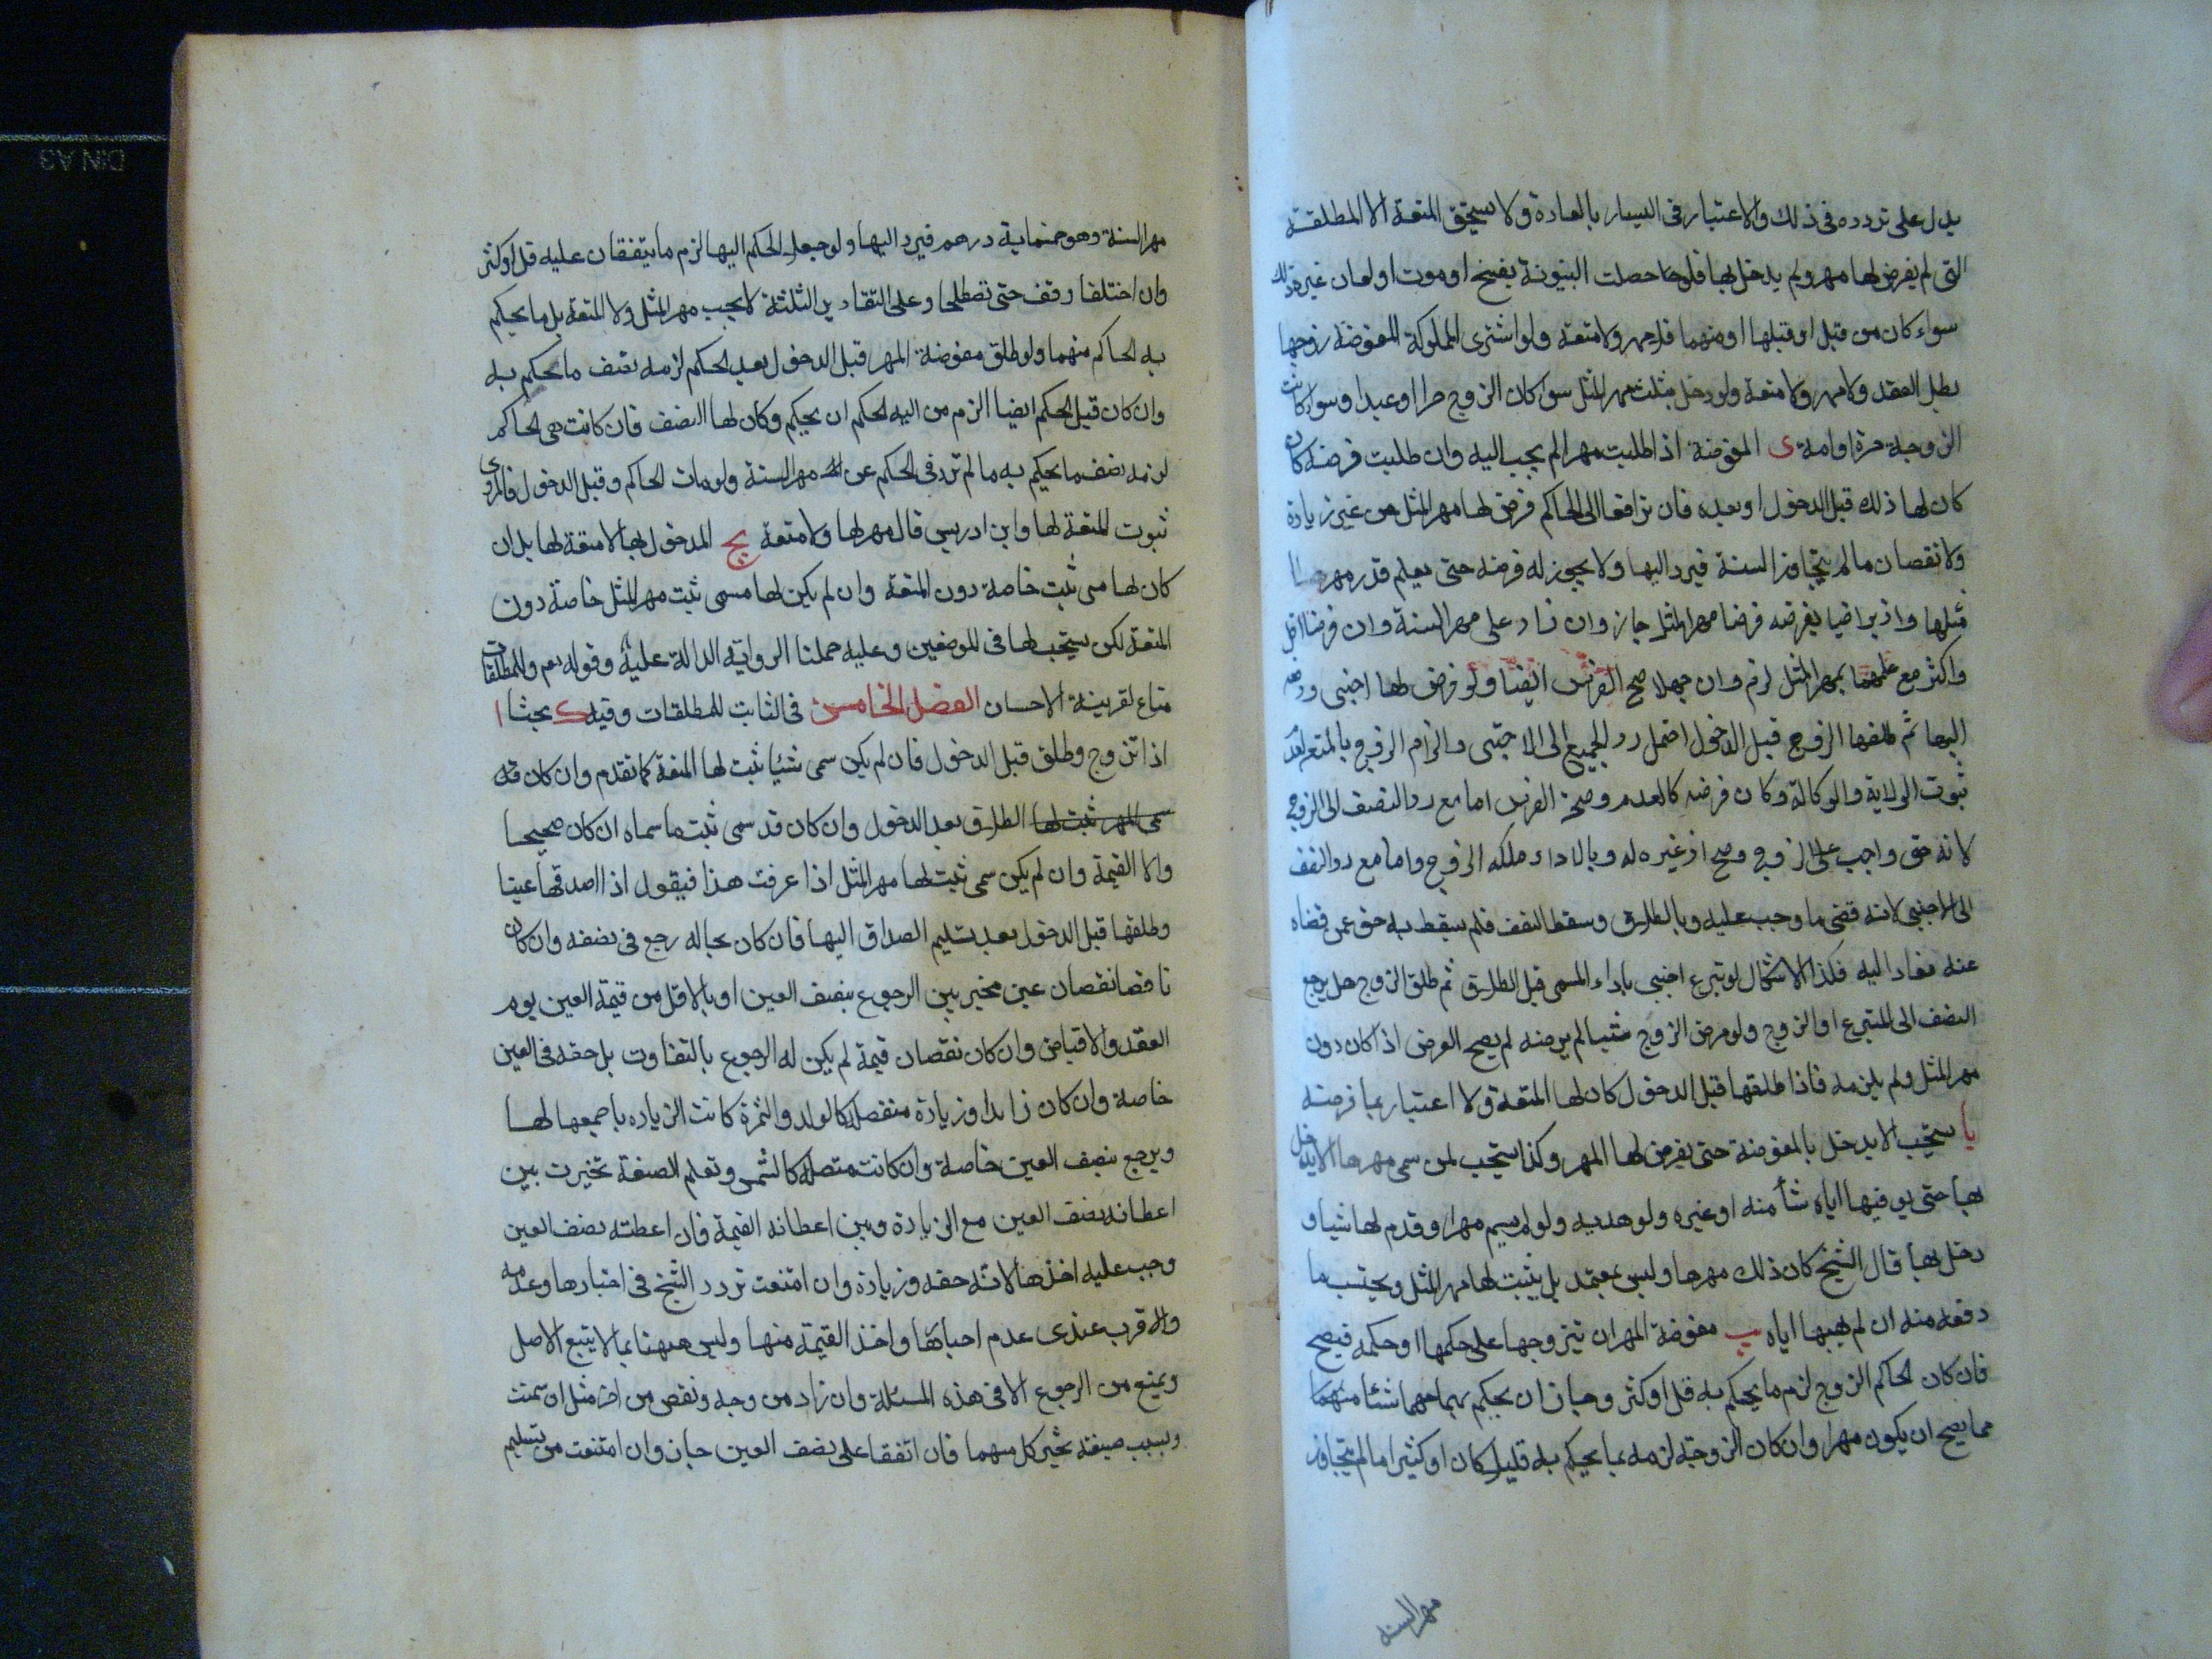 يدل على تردده في ذلك والاعتبار في اليسار بالعادة ولا يستحق المتعة الا المطلقة
التي لم يفرض لها مهر ولم يدخل بها فلو حصلت البينونة بفسخ او موت او لعان غير ذلك
سواء كان من قبل او قبلها او منهما فلا مهر ولا متعة ولو اشترى المملوكة المفوضة زوجها
بطل العقد ولا مهر ولا متعة ولو دخل مهر المثل سوا كان الزوج حرا او عبدا وسواء كانت
الزوجة حرة او امة ى المفوضة اذا طلبت مهرا لم يجب اليه وان طلبت فرضه كان
كان لها ذلك قبل الدخول او بعده فان ترافعا الى الحاكم فرض لها مهر المثل من غير زيادة
ولا نقصان ما لم يتجاوز السنة فيرد اليها ولا يجوز له فرضه حتى يعلم قدر مهر
مثلها واذ يراضيا بفرضه فرضا مهر المثل جاز وان زاد على مهر السنة وان فرضا اقل
واكثر مع علمهما بمهر المثل لزم وان جهلا صح الفرض ايضا ولو فرض لها اجنبي ودفعه
اليها ثم طلقها الزوج قبل الدخول احتمل رد الجميع الى الاجنبى والزام الزوج بالمتعة لعدم
ثبوت الولاية والوكالة وكان فرضه كالعدم وصحة الفرض اما مع رد النصف الى الزوج
لانه حق واجب على الزوج وصح از غيره له وبالاداء ملكه الزوج واما مع رد النصف
الى الاجنبي لانه قضى ما وجب عليه وبالطلاق وسقط النصف فلم يسقط به حق عمن قضاه
عنه فعاد اليه فكذا الاشكال لو تبرع اجنبى باداء المسمى قبل الطلاق ثم طلق الزوج هل يرجع
النصف الى المتبرع او الزوج ولو فرض الزوج شيا لم يرضه لم يصح الفرض اذا كان دون
مهر المثل ولم يلزمه فاذا طلقها قبل الدخول كان لها المتعة ولا اعتبار بما فرضه
يا يستحب الا يدخل بالمفوضة حتى يفرض لها المهر وكذا يستحب لمن سمى مهرها الا يدخل
بها حتى يوفيها اياه شأ منه او غيره ولو هدية ولو لم يسم مهرا وقدم لها شيا و
دخل بها قال الشيخ كان ذلك مهرها وليس بمعتمد بل يثبت لها مهر المثل ويحتسب ما
دفعه منه ان لم يهبها اياه يب مفوضة المهر ان تتزوجها على حكمها او حكمه فيصح
فان كان الحاكم الزوج لزم ما يحكم به قل او كثر وجاز ان يحكم بمهما شئا منهما
مما يصح ان يكون مهرا وان كان الزوجة لزمه بما يحكم به قليلا كان او كثيرا ما لم يتجاوز
مهر السنه
مهر السنة وهو خمسماية درهم فيرد اليها ولو جعل الحكم اليها لزم ما يتفقان عليه قل او كثر
وان اختلفا وقف حتى تصطلحا وعلى التقادير الثلثة لا يجب مهر المثل ولا المتعة بل ما يحكم
به الحاكم منهما ولو طلق مفوضة المهر قبل الدخول بعد الحكم لزمه نصف ما يحكم به
وان كان قبل الحكم ايضا الزم من اليه الحكم ان يحكم وكان لها النصف فان كانت هى الحاكم
لزمه نصف ما يحكم به ما لم تزد في الحكم عن مهر السنة ولو مات الحاكم وقبل الدخول فالمروى
ثبوت المتعة لها وابن ادريس قال مهر لها ولا متعة يج المدخول بها لا متعة لها بل ان
كان لها مسمى ثبت خاصة دون المتعة وان لم يكن لها مسمى ثبت مهر المثل خاصة دون
المتعة لكن يستحب لها في الموضعين وعليه حملنا الرواية الدالة عليه وقوله تعم وللمطلقات
متاع لقرينة الاحسان الفصل الخامس في الثابت للمطلقات وفيه ك بحثا ا
اذا تزوج وطلق قبل الدخول فان لم يكن سمى شيئا ثبت لها المتعة كما تقدم وان كان قد
سمى المهر ثبت لها الطلاق بعد الدخول وان كان قد سمى ثبت ما سماه ان كان صحيحا
والا القيمة وان لم يكن سمى ثبت لها مهر المثل اذا عرفت هذا فيقول اذا اصدقها عينا
وطلقها قبل الدخول بعد تسليم الصداق اليها فان كان بحاله رجع في نصفه وان كان
ناقصا نقصان عين تخير بين الرجوع بنصف العين او بالاقل من قيمة العين يوم
العقد والاقباض وان كان نقصان قيمة لم يكن له الرجوع بالتفاوت بل حقه في العين
خاصة وان كان زايدا وزيادة منفصلة كالولد والثمرة كانت الزيادة باجمعها لها
ويرجع بنصف العين خاصة وان كانت متصلة كالسمن وتعلم الصنعة تخيرت بين
اعطائه نصف العين مع الزيادة وبين اعطائه القيمة فان اعطته نصف العين
وجب عليه اخذها لانه حقه وزيادة وان امتنعت تردد الشيخ في اجبارها وعدمه
والاقرب عندى عدم اجبارها واخذ القيمة منها وليس ههنا بما لا يتبع الاصل
ويمنع من الرجوع الا في هذه المسئلة وان زاد من وجه ونقص من اخر مثل ان سمنت
ونسيت صنعة تخير كل منهما فان اتفقا على نصف العين جاز وان امتنعت من تسليم